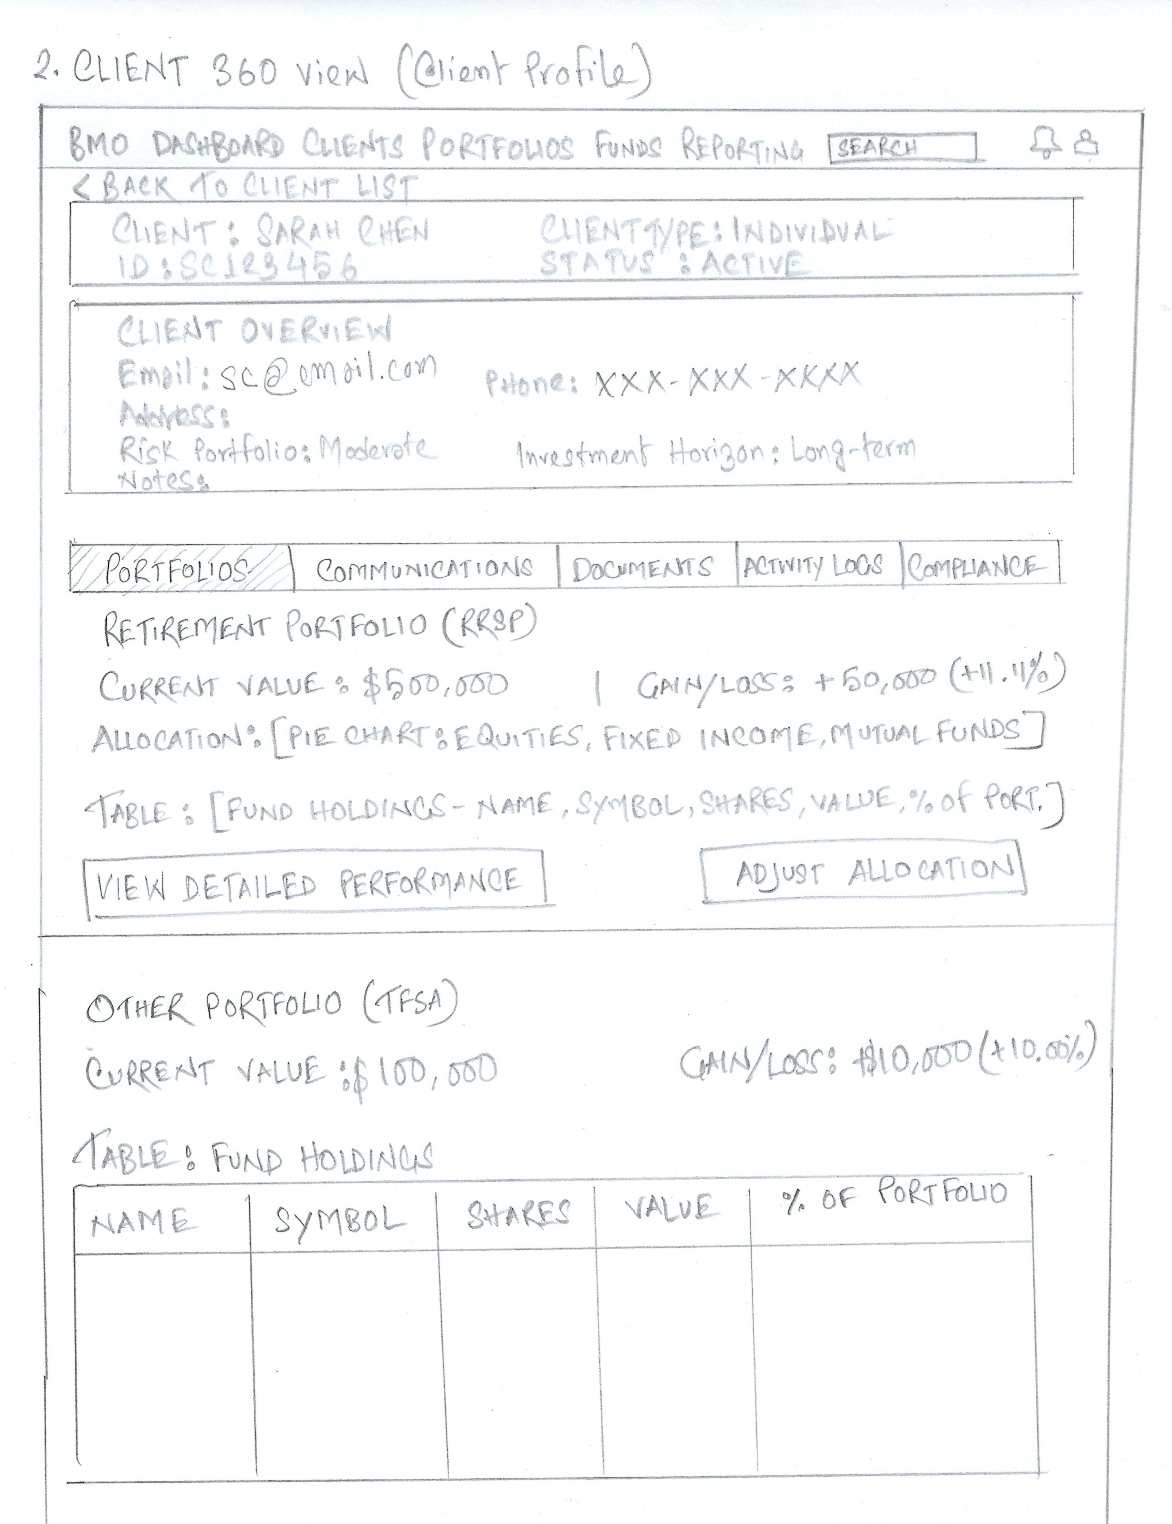 2. CLIENT 360 view (Client Profile)
BMO DASHBOARD CLIENTS PORTFOLIOS FUNDS REPORTING SEARCH
< BACK TO CLIENT LIST
CLIENT : SARAH CHEN CLIENT TYPE : INDIVIDUAL
ID : SC123456 STATUS : ACTIVE
CLIENT OVERVIEW
Email : sc@email.com Phone: XXX-XXX-XXXX
Address:
Risk Portfolio: Moderate Investment Horizon: Long-term
Notes:
PORTFOLIOS COMMUNICATIONS DOCUMENTS ACTIVITY LOGS COMPLIANCE
RETIREMENT PORTFOLIO (RRSP)
CURRENT VALUE : $500,000 | GAIN/LOSS: +50,000 (+11.11%)
ALLOCATION: [PIE CHART: EQUITIES, FIXED INCOME, MUTUAL FUNDS]
TABLE : [FUND HOLDINGS - NAME, SYMBOL, SHARES, VALUE, % of PORT.]
VIEW DETAILED PERFORMANCE ADJUST ALLOCATION
OTHER PORTFOLIO (TFSA)
CURRENT VALUE : $100,000 GAIN/LOSS: +$10,000 (+10.00%)
TABLE : FUND HOLDINGS
NAME SYMBOL SHARES VALUE % OF PORTFOLIO